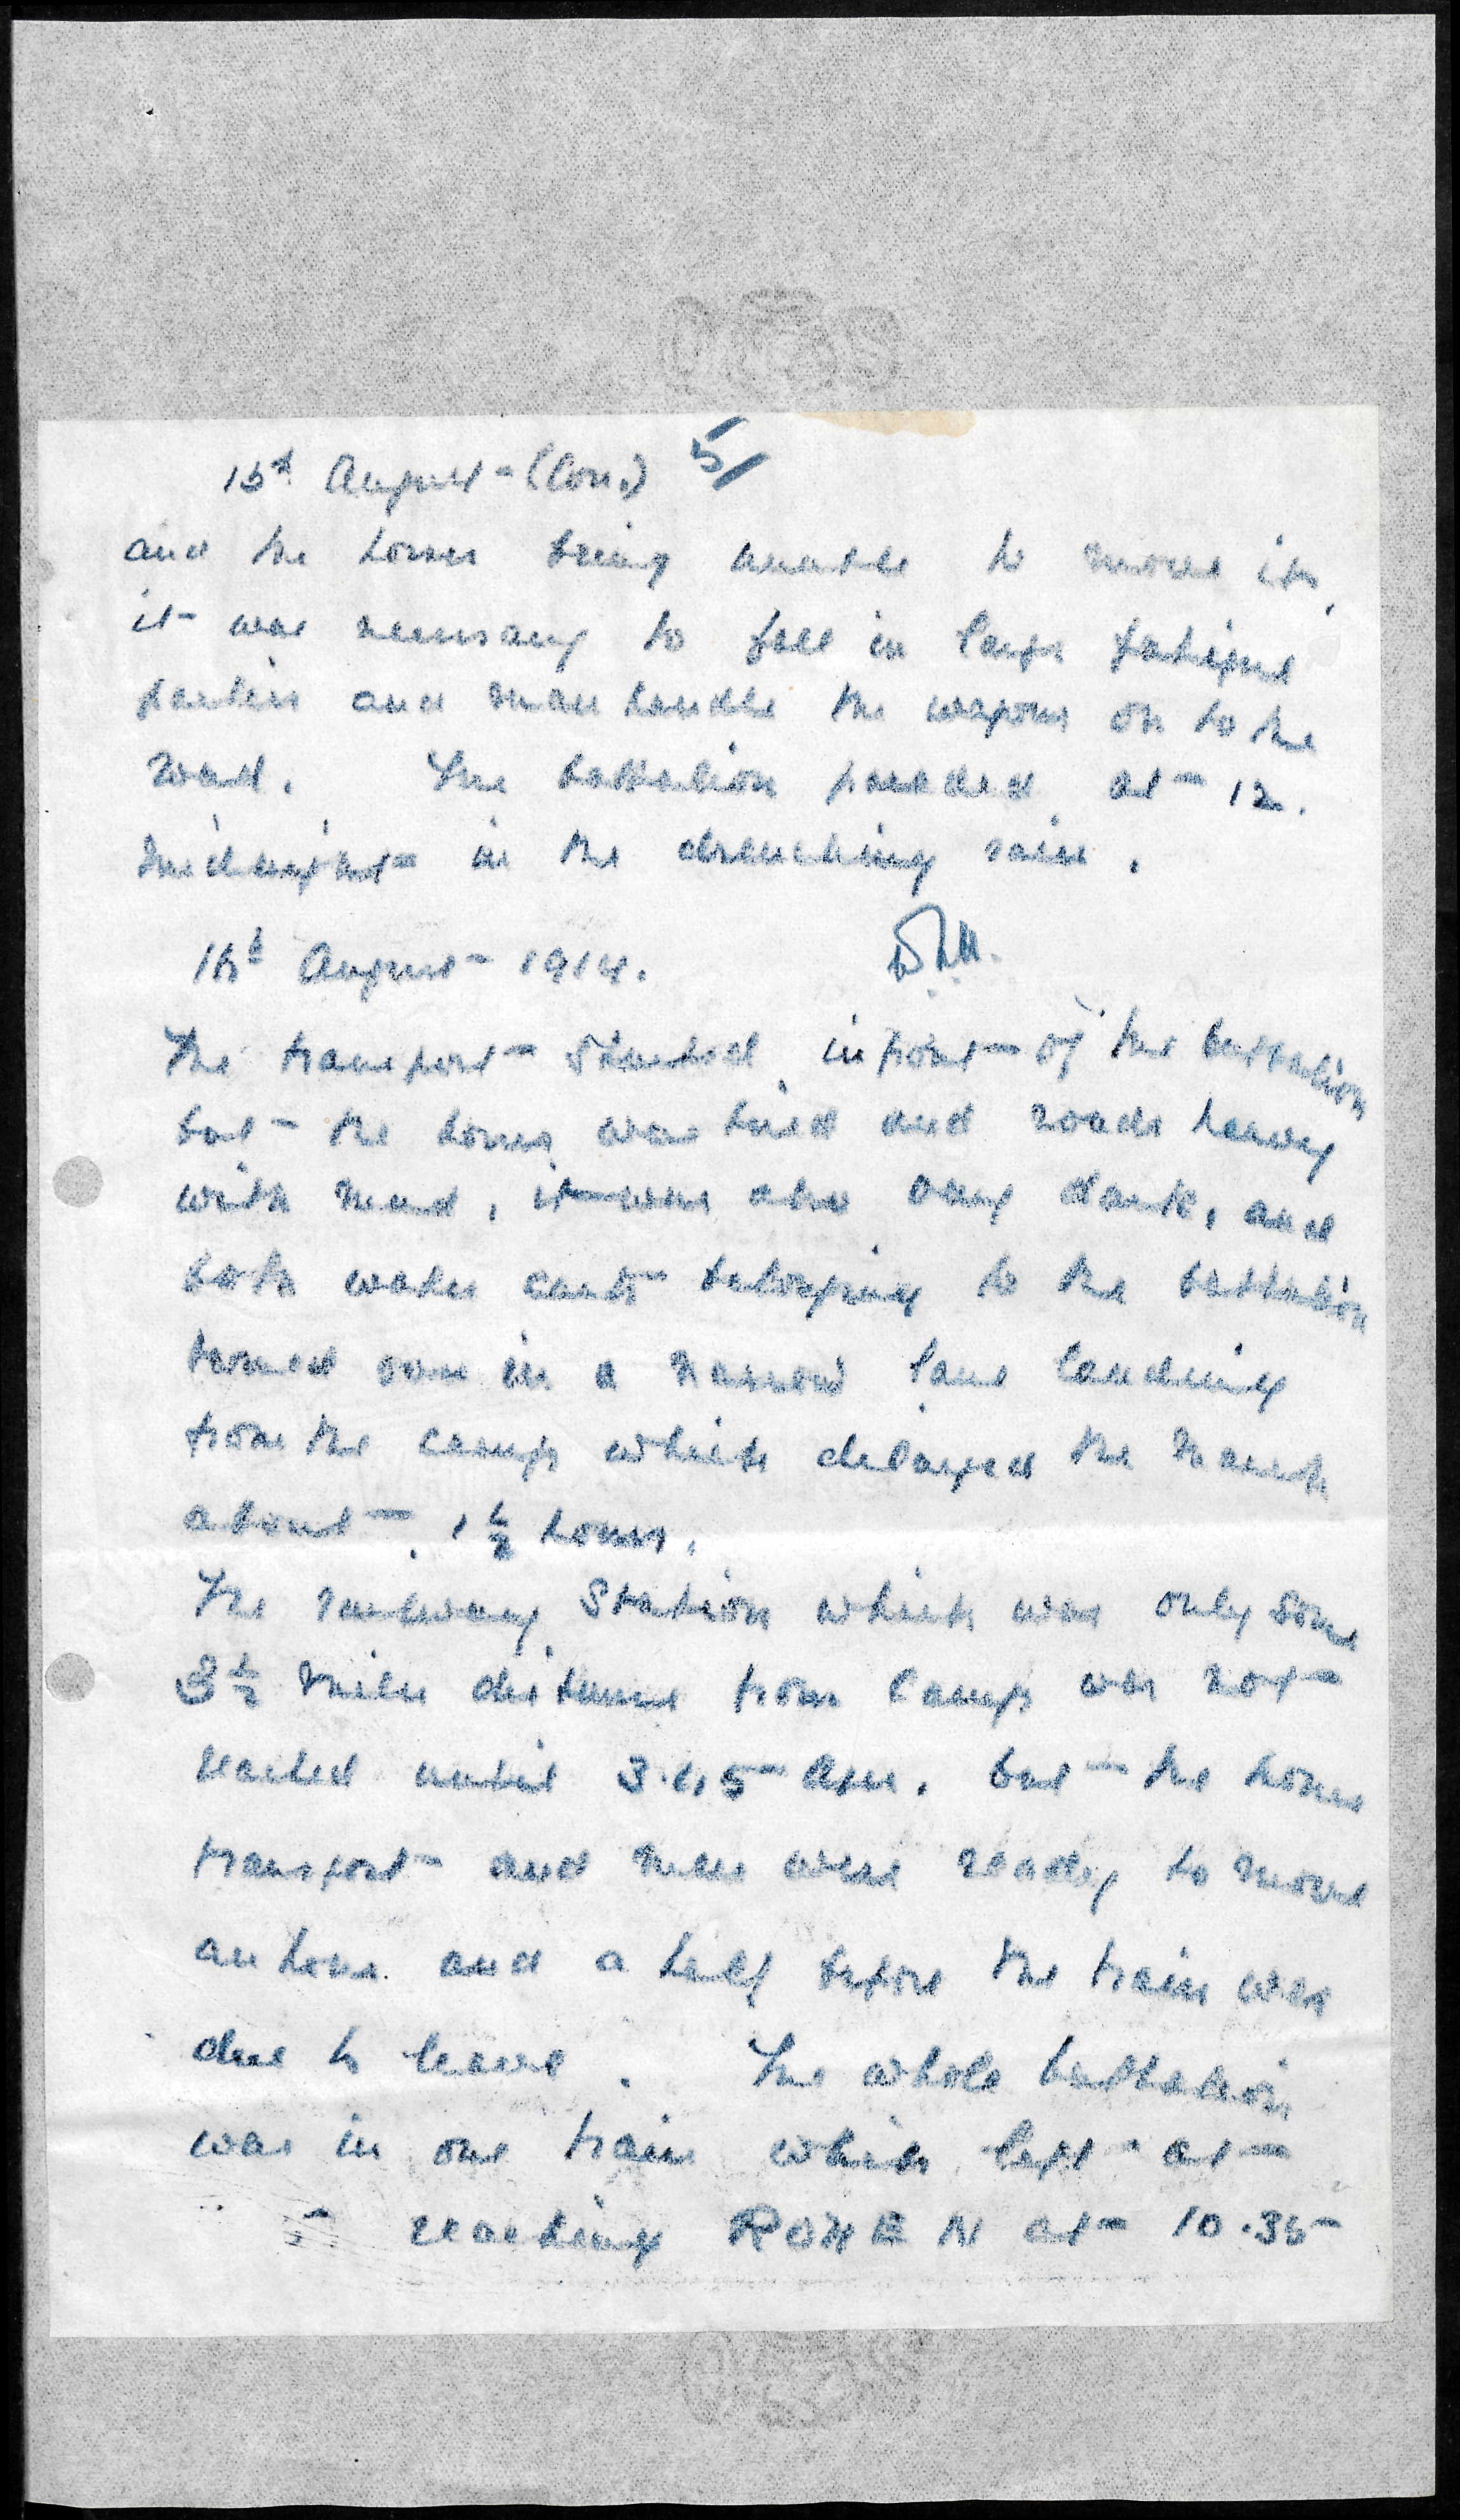 15th August - (Con.) 5/
and the horses being unable to move it,
it was necessary to fall in large fatigue
parties and man handle the wagons on to the
road. The battalion paraded at 12.
midnight in the drenching rain.
16th August 1914.
The transport started in front of the battalion
but the horses were tired and roads heavy
with mud, it was also very dark, and
both water carts belonging to the battalion
turned over in a narrow lane leading
from the camp which delayed the march
about 1½ hours.
The railway station which was only some
3½ miles distance from camp was not
reached until 3.45 am. but the horses
transport and men were ready to move
an hour and a half before the train was
due to leave. The whole battalion
was in one train which left at
reaching ROUEN at 10.35